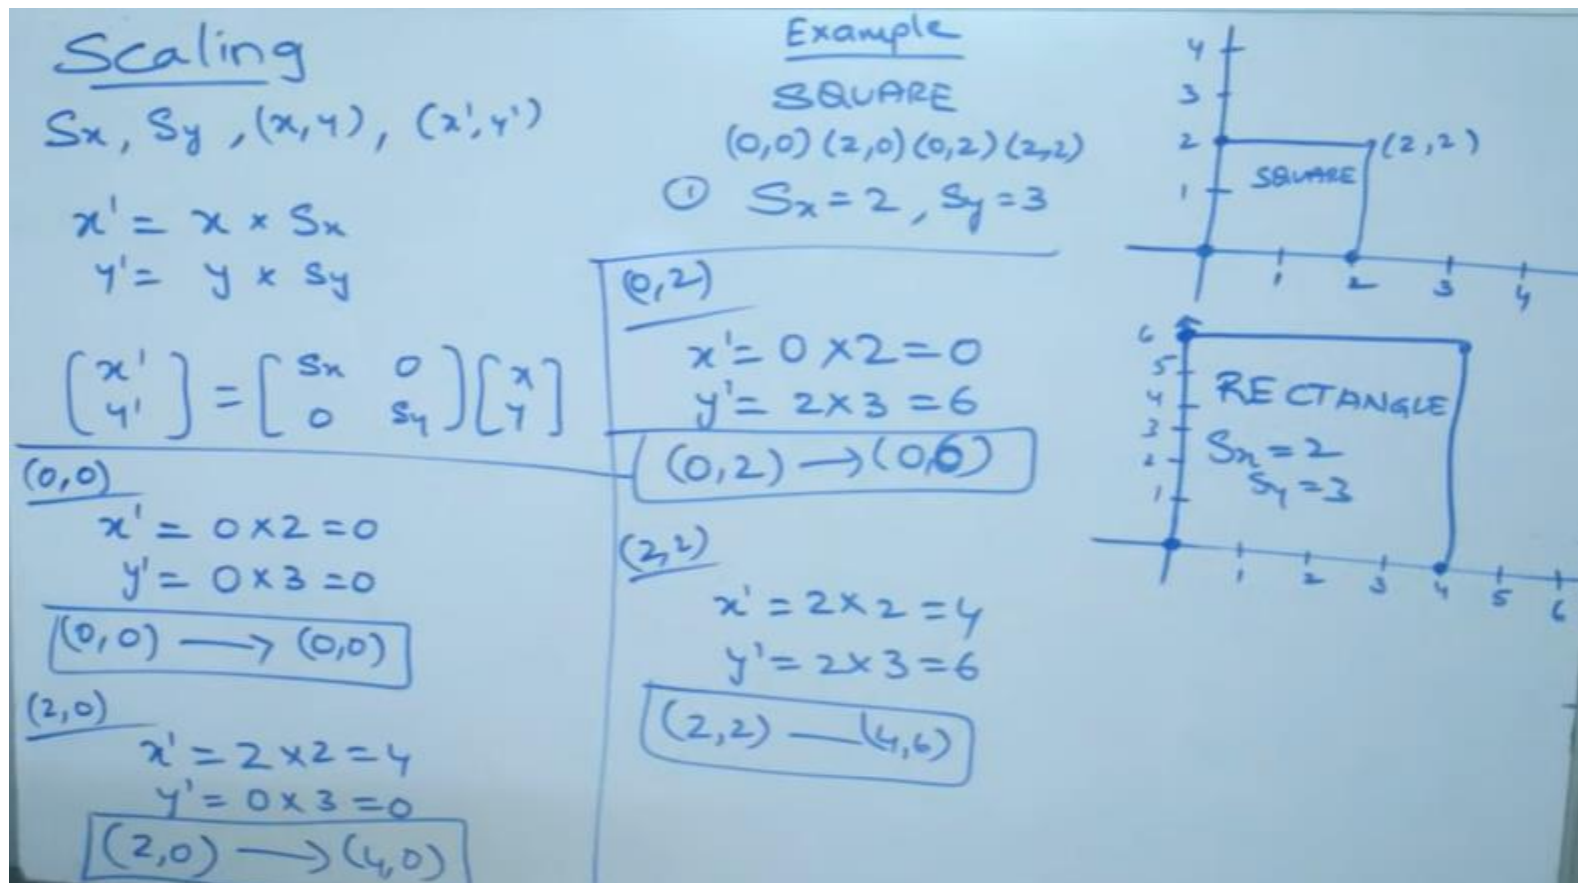 Scaling
Sx, Sy, (x,y), (x',y')
x' = x × Sx
y' = y × Sy
[x' y'] = [Sx 0 0 Sy] [x y]
(0,0)
x' = 0×2=0
y' = 0×3=0
(0,0) → (0,0)
(2,0)
x' = 2×2=4
y' = 0×3=0
(2,0) → (4,0)
Example
SQUARE
(0,0) (2,0) (0,2) (2,2)
① Sx=2, Sy=3
(0,2)
x'= 0×2=0
y'= 2×3=6
(0,2) → (0,6)
(2,2)
x' = 2×2=4
y' = 2×3=6
(2,2) — (4,6)
4
3
2 (2,2)
SQUARE
1
1 2 3 4
6
5
RECTANGLE
4
3
Sx=2
2
Sy=3
1
1 2 3 4 5 6